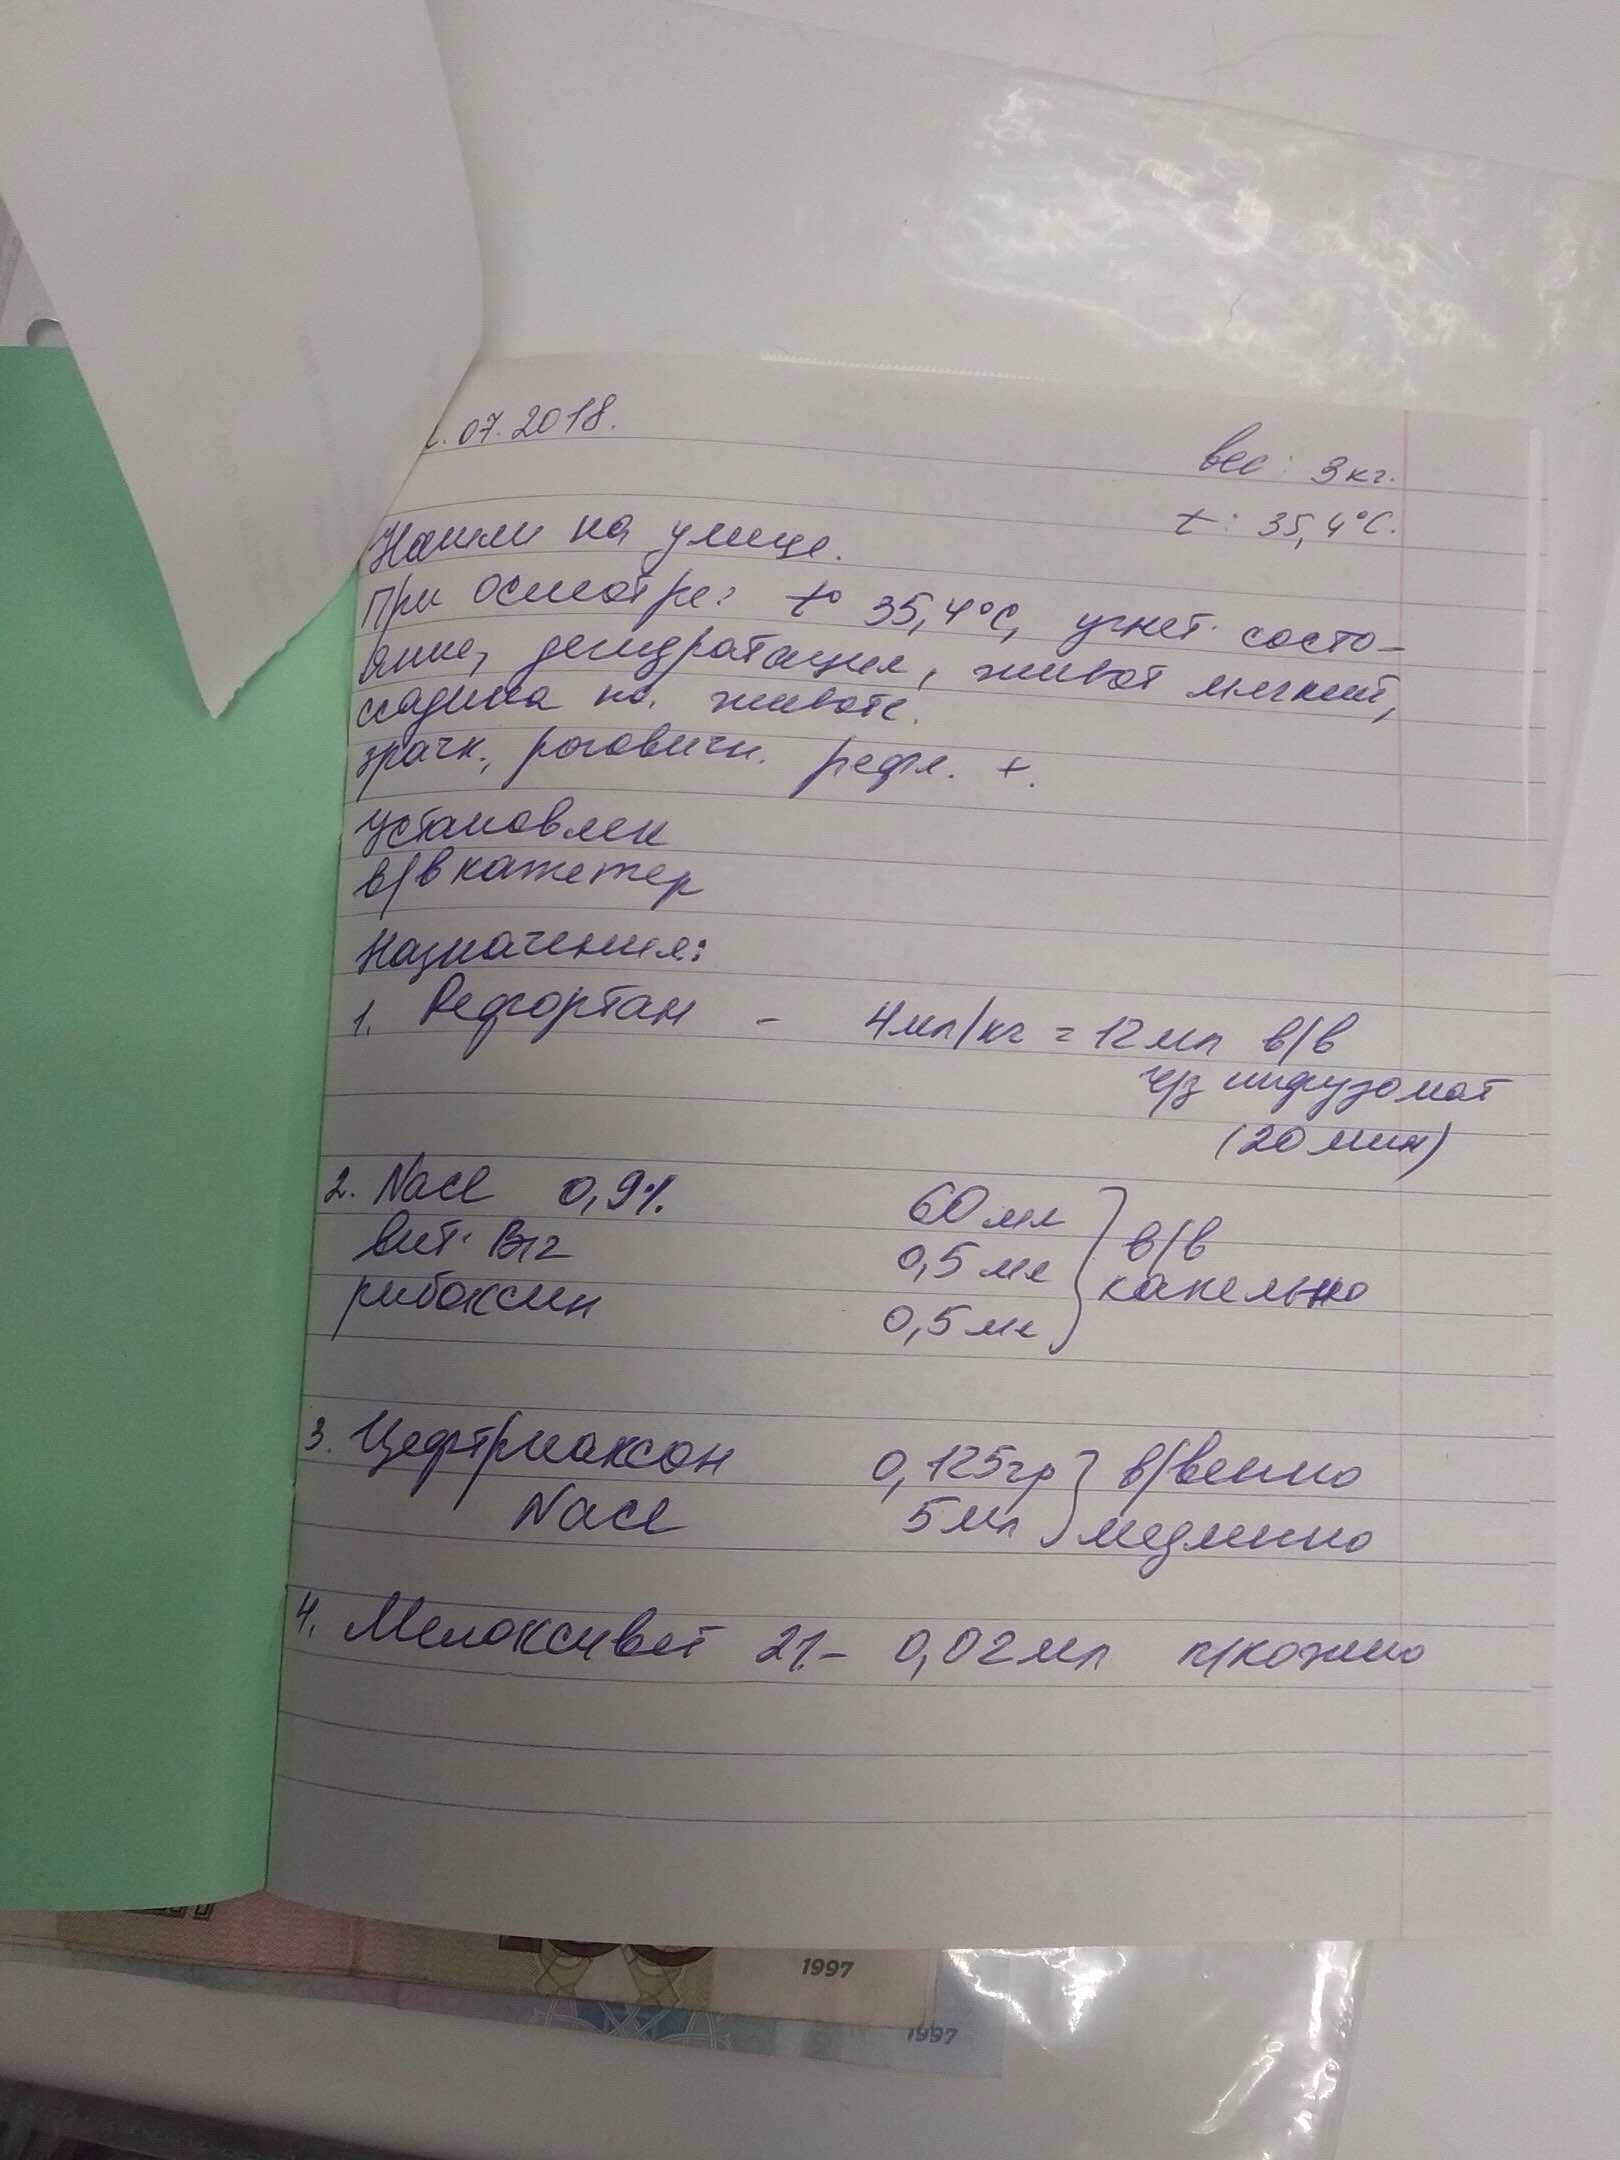 .07.2018.
вес: 3кг.
t: 35,4°С.
Нашли на улице.
При осмотре: t° 35,4°С, угнет. состо-
яние, дегидратация, живот мягкий,
ссадина на животе.
зрачк., роговичн. рефл. +.
Установлен
в/в катетер
Назначения:
1. Рефортан - 4мл/кг = 12мл в/в
ч/з инфузомат
(20 мин)
2. NaCl 0,9% 60мл } в/в
вит. В12 0,5мл } капельно
рибоксин 0,5мл
3. Цефтриаксон 0,125гр } в/венно
NaCl 5мл } медленно
4. Мелоксивет 2% - 0,02мл п/кожно
1997
1997